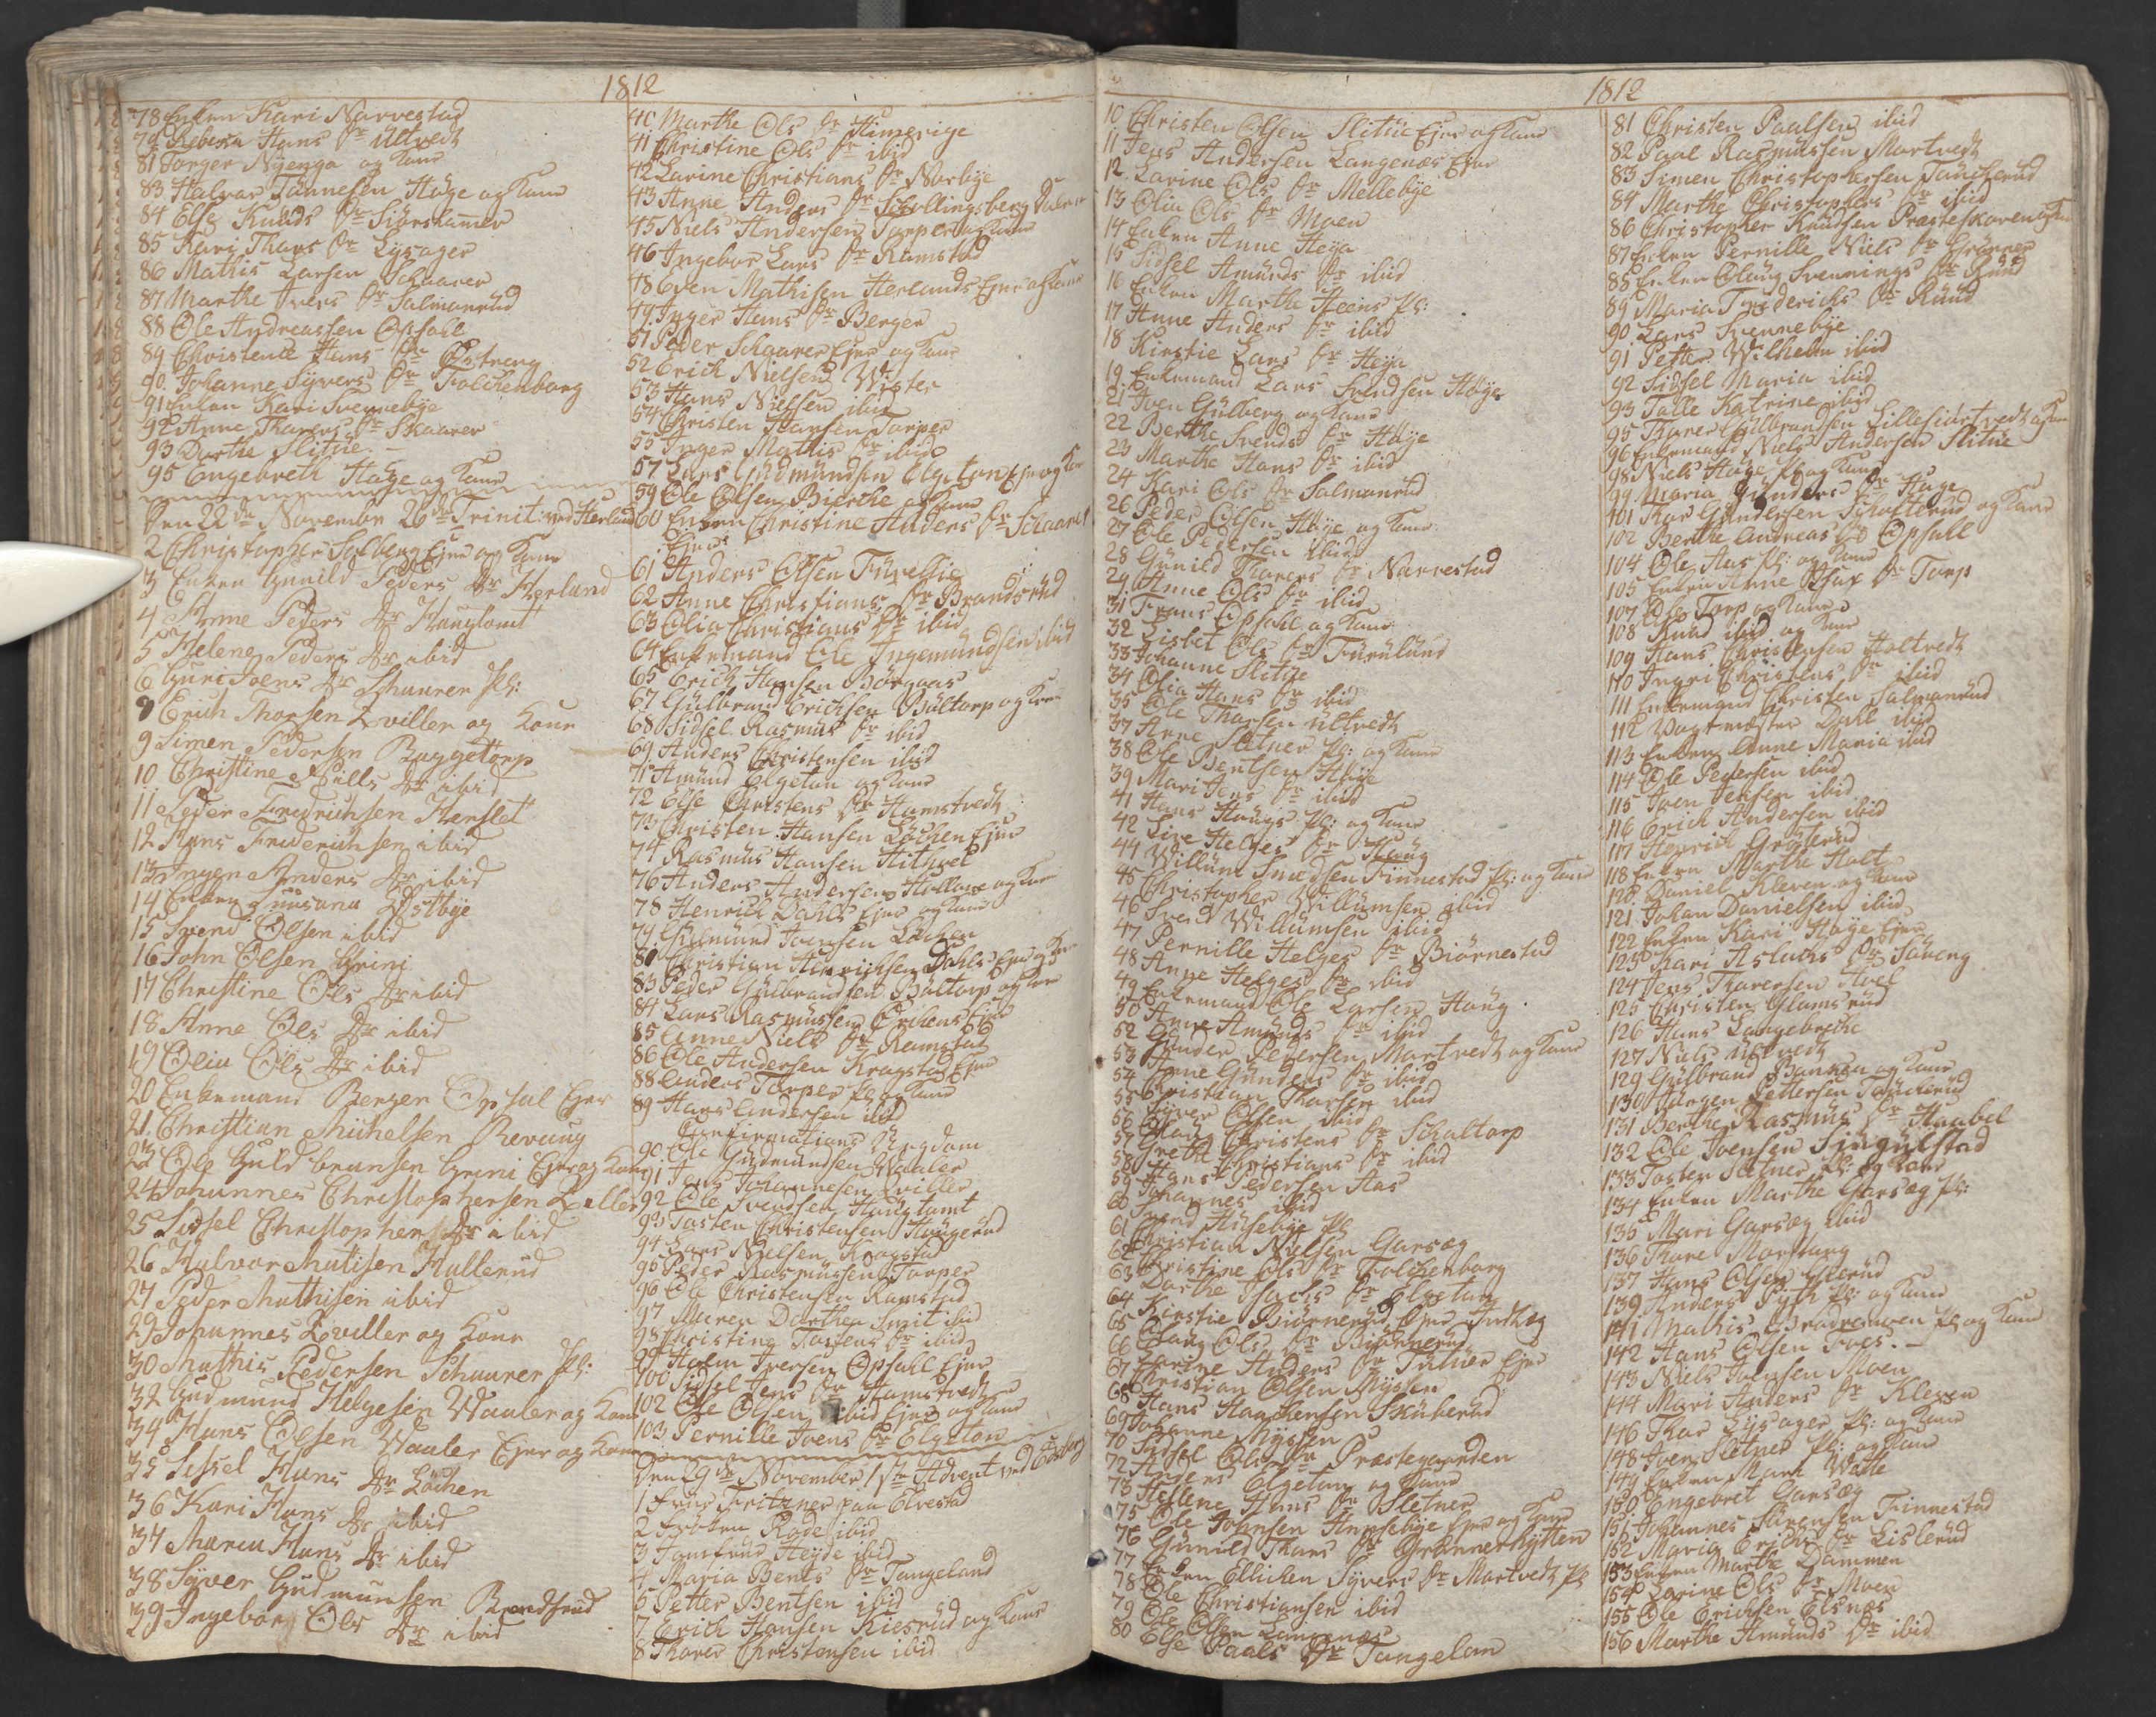 1812
78 Enken Kari Narvestad
79 Rebecca Hans Dr Ultvedt
81 Torger Nyenga og Kone
83 Halvor Tønnesen Hage og Kone
84 Else Knuds Dr
85 Kari Thors Dr Lysager
86 Mathis Larsen Schaarer
87 Marthe Ivers Dr Salmanrud
88 Ole Andreassen Opsall
89 Christence Hans Dr Østreng
90. Johanne Syvers Dr Folckenborg
91 Enken Kari Svennebye
92 Anne Thorers Dr Skaarer
93 Dorthe Slitue
95 Engebreth Hage og Kone
Den 22de November 26de Trinit: ved Herland
2 Christopher Solberg Ejer og Kone
3 Enken Gunild Peders Dr Herland
4 Anne Peders Dr Haugtomt
5 Helene Peders Dr ibid
6 Guri Joens Dr Schaarer Pl:
8 Erich Thorsen Zviller og Kone
9 Simen Pedersen Buggetorp
10 Christine Nills Dr ibid
11 Peder Fredrichsen Henslet
12 Hans Frederichsen ibid
13 Ingen Anders Dr ibid
14 Enken Susana Østbye
15 Svend Olsen ibid
16 John Olsen Grini
17 Christine Ols Dr ibid
18 Anne Ols Dr ibid
19 Oliu Ols Dr ibid
20 Enkemand Berger Opsal Ejer
21. Christian Michelsen Revaug
23 Ole Guldbransen Grini Ejer og Kone
24 Johannes Christophersen Zviller
25 Sidsel Christophers Dr ibid
26 Halvor Matisen Hullerud
27 Peder Mathisen ibid
29 Johannes Zviller og Kone
30 Mathis Pedersen Schaurer Pl:
32 Gudmund Helgesen Waaler og Kone
34 Hans Olsen Waaler Ejer og Kone
35 Sissel Hans Dr Löchen
36 Kari Hans Dr ibid
37 Maren Hans Dr ibid
38 Syver Gudmunsen Brandsrud
39 Ingebor Ols Dr ibid
40 Marthe Ols Dr Himerige
41 Christine Ols Dr ibid
42 Larine Christians Dr Norbye
43 Anne Anders Dr Schollingsberg
45 Niels Andersen Torper og Kone
46 Ingebor Lars Dr Ramstad
48 Even Mathisen Herlands Ejer og Kone
49. Inger Hans Dr Berger
51 Peder Schaarer Ejer og Kone
52 Erich Nielsen Wister
53 Hans Nielsen ibid
54 Christen Hansen Torper
55 Inger Mathis Dr ibid
57 Lars Gudmundsen Elgeton Ejer og Kone
59 Ole Olsen Bierche og Kone
60 Enken Christine Anders Dr Schaarer
Ejer
61 Anders Olsen Furesjie
62 Anne Christians Dr Brandsrud
63 Olia Christians Dr ibid
64 Enkemand Ole Ingemundsen ibid
65 Erich Hansen Borgaas
67 Gulbrand Erichsen Bultorp og Kone
68 Sidsel Rasmus Dr ibid
69 Anders Christensen ibid
71 Amund Elgeton og Kone
72 Else Christens Dr Hamstvedt
73 Christen Hansen Löchen Ejer
74 Rasmus Hansen Hithvet
76 Anders Andersen og Kone
78 Henrich Dahls Ejer og Kone
79 Gudmund Joensen Löchen
81 Christian Henrichsen Dahls Ejer og Kone
83 Peder Gulbrandsen Bultorp og Kone
84 Lars Rasmussen Ejer
85 Anne Niels Dr Ramstad
86 Ole Andersen Kragstad Ejer
88 Anders Torper Pl og Kone
89 Hans Andersen ibid
Confirmations Ungdom
90 Ole Gudmundsen Waaler
91 Jens Johannesen Zviller
92 Ole Svendsen Haugtomt
93 Tosten Christensen Haugerud
94 Lars Nielsen Kragstad
95 Peder Rasmussen Torper
96 Ole Christensen Ramstad
97 Maren Dorthea Smit ibid
98 Christine Tostens Dr ibid
99 Halvor Iversen Opsall Ejer
100 Sidsel Jens Dr Hamstvedt
102 Ole Olsen ibid Ejer og Kone
103 Pernille Joens Dr Elgeton
Den 29de November 1ste Advent ved Edsberg
1 Frue Fritzner paa Elvestad
2 Fröken Rode ibid
3 Jomfrue Heyde ibid
4 Maria Bents Dr Tangeland
5 Petter Bentsen ibid
7 Erich Hansen Kiesrud og Kone
8 Thorer Christensen ibid
1812
10 Christen Olsen Slitue Ejer og Kone
11 Jens Andersen Langenæs Ejer
12. Larine Ols Dr Mellebye
13 Olia Ols Dr Moen
14 Enken Anne Heya
15 Sidsel Amunds Dr ibid
16 Enken Marthe Heens Pl:
17 Anne Anders Dr ibid
18 Kirstie Lars Dr Heya
19. Enkemand Lars Svendsen Höye
21 Iven Gulberg og Kone
22 Berthe Svends Dr Höye
23 Marthe Hans Dr ibid
24 Kari Ols Dr Salmanrud
26 Peder Olsen Höye og Kone
27 Ole Pedersen ibid
28 Gunild Thorers Dr Narvestad
29. Anne Ols Dr ibid
31 Frans Opsahl og Kone
32 Lisbet Ols Dr Furulund
33 Johanne Slitue
34 Olia Hans Dr ibid
35 Ole Thorsen Ultvedt
37 Arne Sletner Pl: og Kone
38 Ole Bentsen Höye
39 Mari Jens Dr ibid
41 Hans Haugs Pl: og Kone
42 Live Helges Dr Haug
44 Willum Smedsen Finnestad Pl: og Kone
45 Christopher Willumsen ibid
46 Svend Willumsen ibid
47 Pernille Helges Dr Biörnestad
48 Anne Helges Dr ibid
49 Enkemand Ole Larsen Haug
50 Anne Amunds Dr ibid
52 Gunder Pedersen Martvedt og Kone
53 Anne Gunders Dr ibid
54 Christian Thorsen ibid
55 Syver Olsen ibid
56 Olaug Christens Dr Schaltorp
57 Grethe Christians Dr ibid
58 Hans Pedersen Aas
59 Johannes ibid
60 Svend Husebye Pl
61 Christian Nielsen Garsæg
62 Christine Ols Dr Folckenborg
63 Dorthe Isachs Dr Elgeton
64 Kirstie Biörnerud Ejer Indlæg
65 Olaug Ols Dr Biörnerud
66 Karine Anders Dr Ejer
67 Christian Olsen Mysen
68 Hans Haachensen Skuberud
69 Johanne Myssen
70 Sidsel Ols Dr Præstegaarden
72 Anders Elgeton og Kone
73 Hellene Hans Dr Sletner
75 Ole Johnsen Hansebye Ejer og Kone
76 Gunild Thors Dr Grönnerhytten
77 Enken Ellichen Syvers Dr Martvedt Pl
78 Ole Christiansen ibid
79 Ole Olsen Langenæs
80 Else Paals Dr Tangelan
81 Christen Paulsen ibid
82 Paal Rasmussen Martvedt
83 Simen Christophersen Taucherud
84 Marthe Christophers Dr ibid
86 Christopher Knudsen Præsteskoven og Kone
87 Enken Pernille Niels Dr Grönner
88 Enken Olaug Svennings Dr Ruud
89 Maria Frederichs Dr Ruud
90. Lars Svennebye
91 Petter Wilhelm ibid
92 Sidsel Maria ibid
93 Talle Katrine ibid
95 Thorer Gulbrandsen Lillesiørtvedt og Kone
96 Enkemand Niels Andersen Slitue
98 Niels Hage Pl og Kone
99 Maria Gunders Dr Hage
101 Thor Gundersen Schofterud og Kone
102 Berthe Andreas Dr Opsall
104 Ole Aas Pl: og Kone
105 Enken Anne Dr Torp
107 Ole Torp og Kone
108 Knud ibid og Kone
109 Hans Christensen Holtvedt
110 Ingri Christens Dr ibid
111 Enkemand Christen Salmanrud
112 Vagtmester Dahl ibid
113 Enken Anne Maria ibid
114 Ole Pedersen ibid
115 Iver Jensen ibid
116 Erich Andersen ibid
117 Henrich Gröterud
118 Enken Marthe Holt
120. Daniel Kleven og Kone
121. Johan Danielsen ibid
122 Enken Kari Höye Ejer
123 Kari Aslachs Dr
124 Jens Thoresen Hoel
125 Christen Glomsrud
126 Hans Langebreche
127 Niels Ultvedt
129 Gulbrand Banken og Kone
130 Haagen Pettersen Taucherud
131 Berthe Rasmus Dr Haabel
132 Ole Joensen Singulstad
133 Tosten Sletner Pl: og Kone
134 Enken Marthe Garsæg Pl:
135 Mari Garsæg ibid
136 Thore Mortberg
137 Hans Olsen
139 Anders Pl: og Kone
141 Mathis Brødremoen Pl og Kone
142 Hans Olsen Foss
143 Niels Ivensen Moen
144 Mari Anders Dr Kleven
146 Thor Lysager Pl: og Kone
148 Iven Sletner Pl: og Kone
149 Enken Mari
150 Engebret Garsæg
151 Johannes Sörensen Finnestad
152 Maria Erichs Dr Lislerud
153 Enken Marthe Dammen
154 Larine Ols Dr Moen
155 Ole Erichsen Elsnæs
156 Marthe Amunds Dr ibid